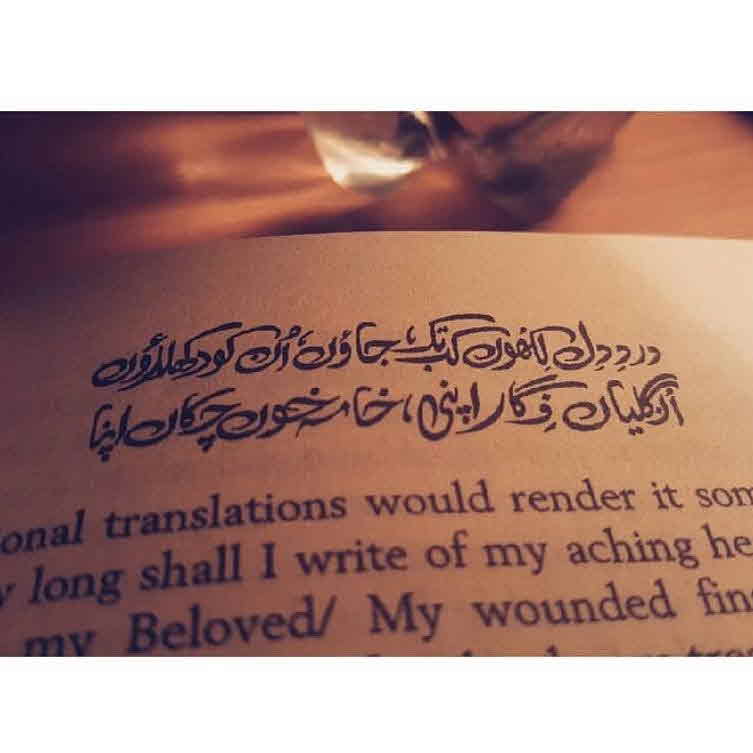 دردِ دِل لِکھوں کب تک، جاؤں اُن کو دکھلاؤں
اُنگلیاں فِگار اپنی، خامہ خوں چکاں اپنا
onal translations would render it som
long shall I write of my aching he
my Beloved/ My wounded fin